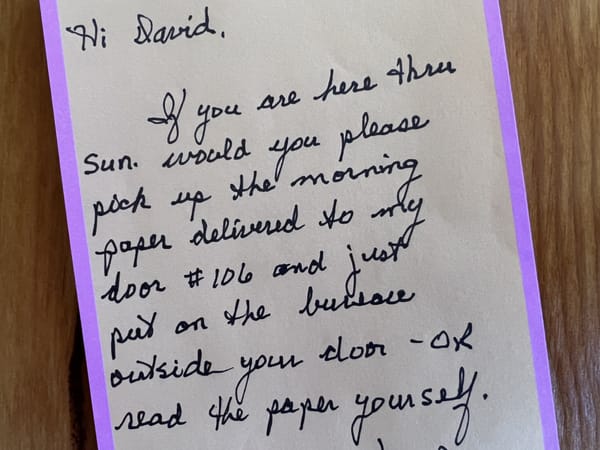 Hi David.
If you are here thru
Sun. would you please
pick up the morning
paper delivered to my
door #106 and just
put on the bureau
outside your door - OR
read the paper yourself.